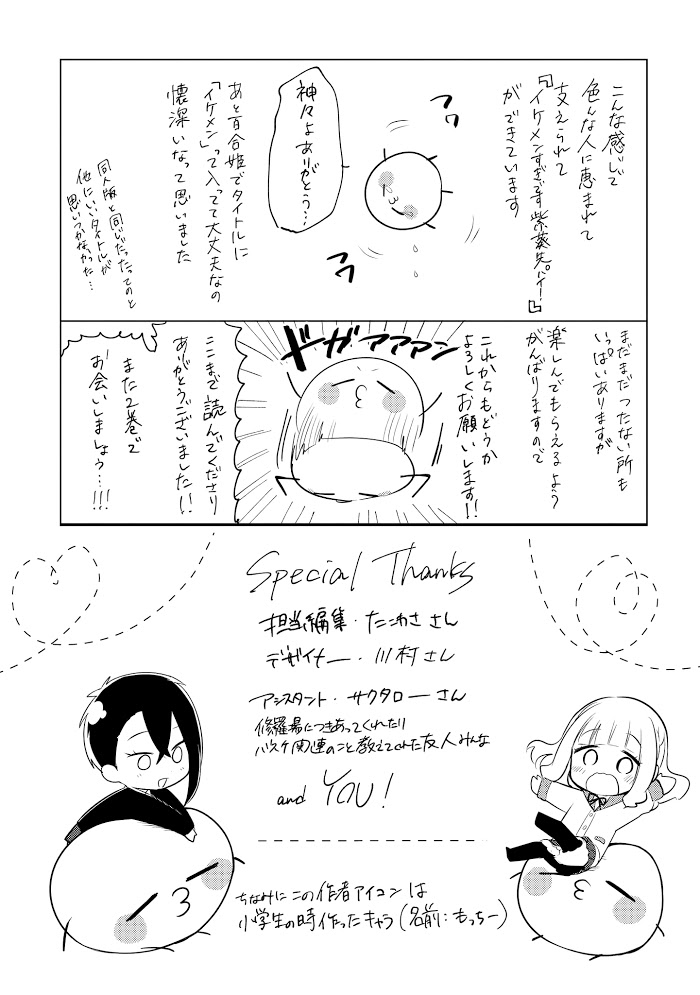 こんな感じで
色んな人に恵まれて
支えられて
『イケメンすぎです紫葵先パイ!』
ができています
フワ
神々よありがとう…
フワ
あと百合姫でタイトルに
「イケメン」って入ってて大丈夫なの
懐深いなって思いました
同人版と同じだったってのと
他にいいタイトルが
思いつかなかった…
まだまだつたない所も
いっぱいありますが
楽しんでもらえるよう
がんばりますので
これからもどうか
よろしくお願いします!!
ドガアアアン
ここまで読んでくださり
ありがとうございました!!
また2巻で
お会いしましょう…!!!
Special Thanks
担当編集・たこわささん
デザイナー・川村さん
アシスタント・サクタローさん
修羅場につきあってくれたり
バスケ関連のこと教えてくれた友人みんな
and YOU!
ちなみにこの作者アイコンは
小学生の時作ったキャラ(名前:もっちー)